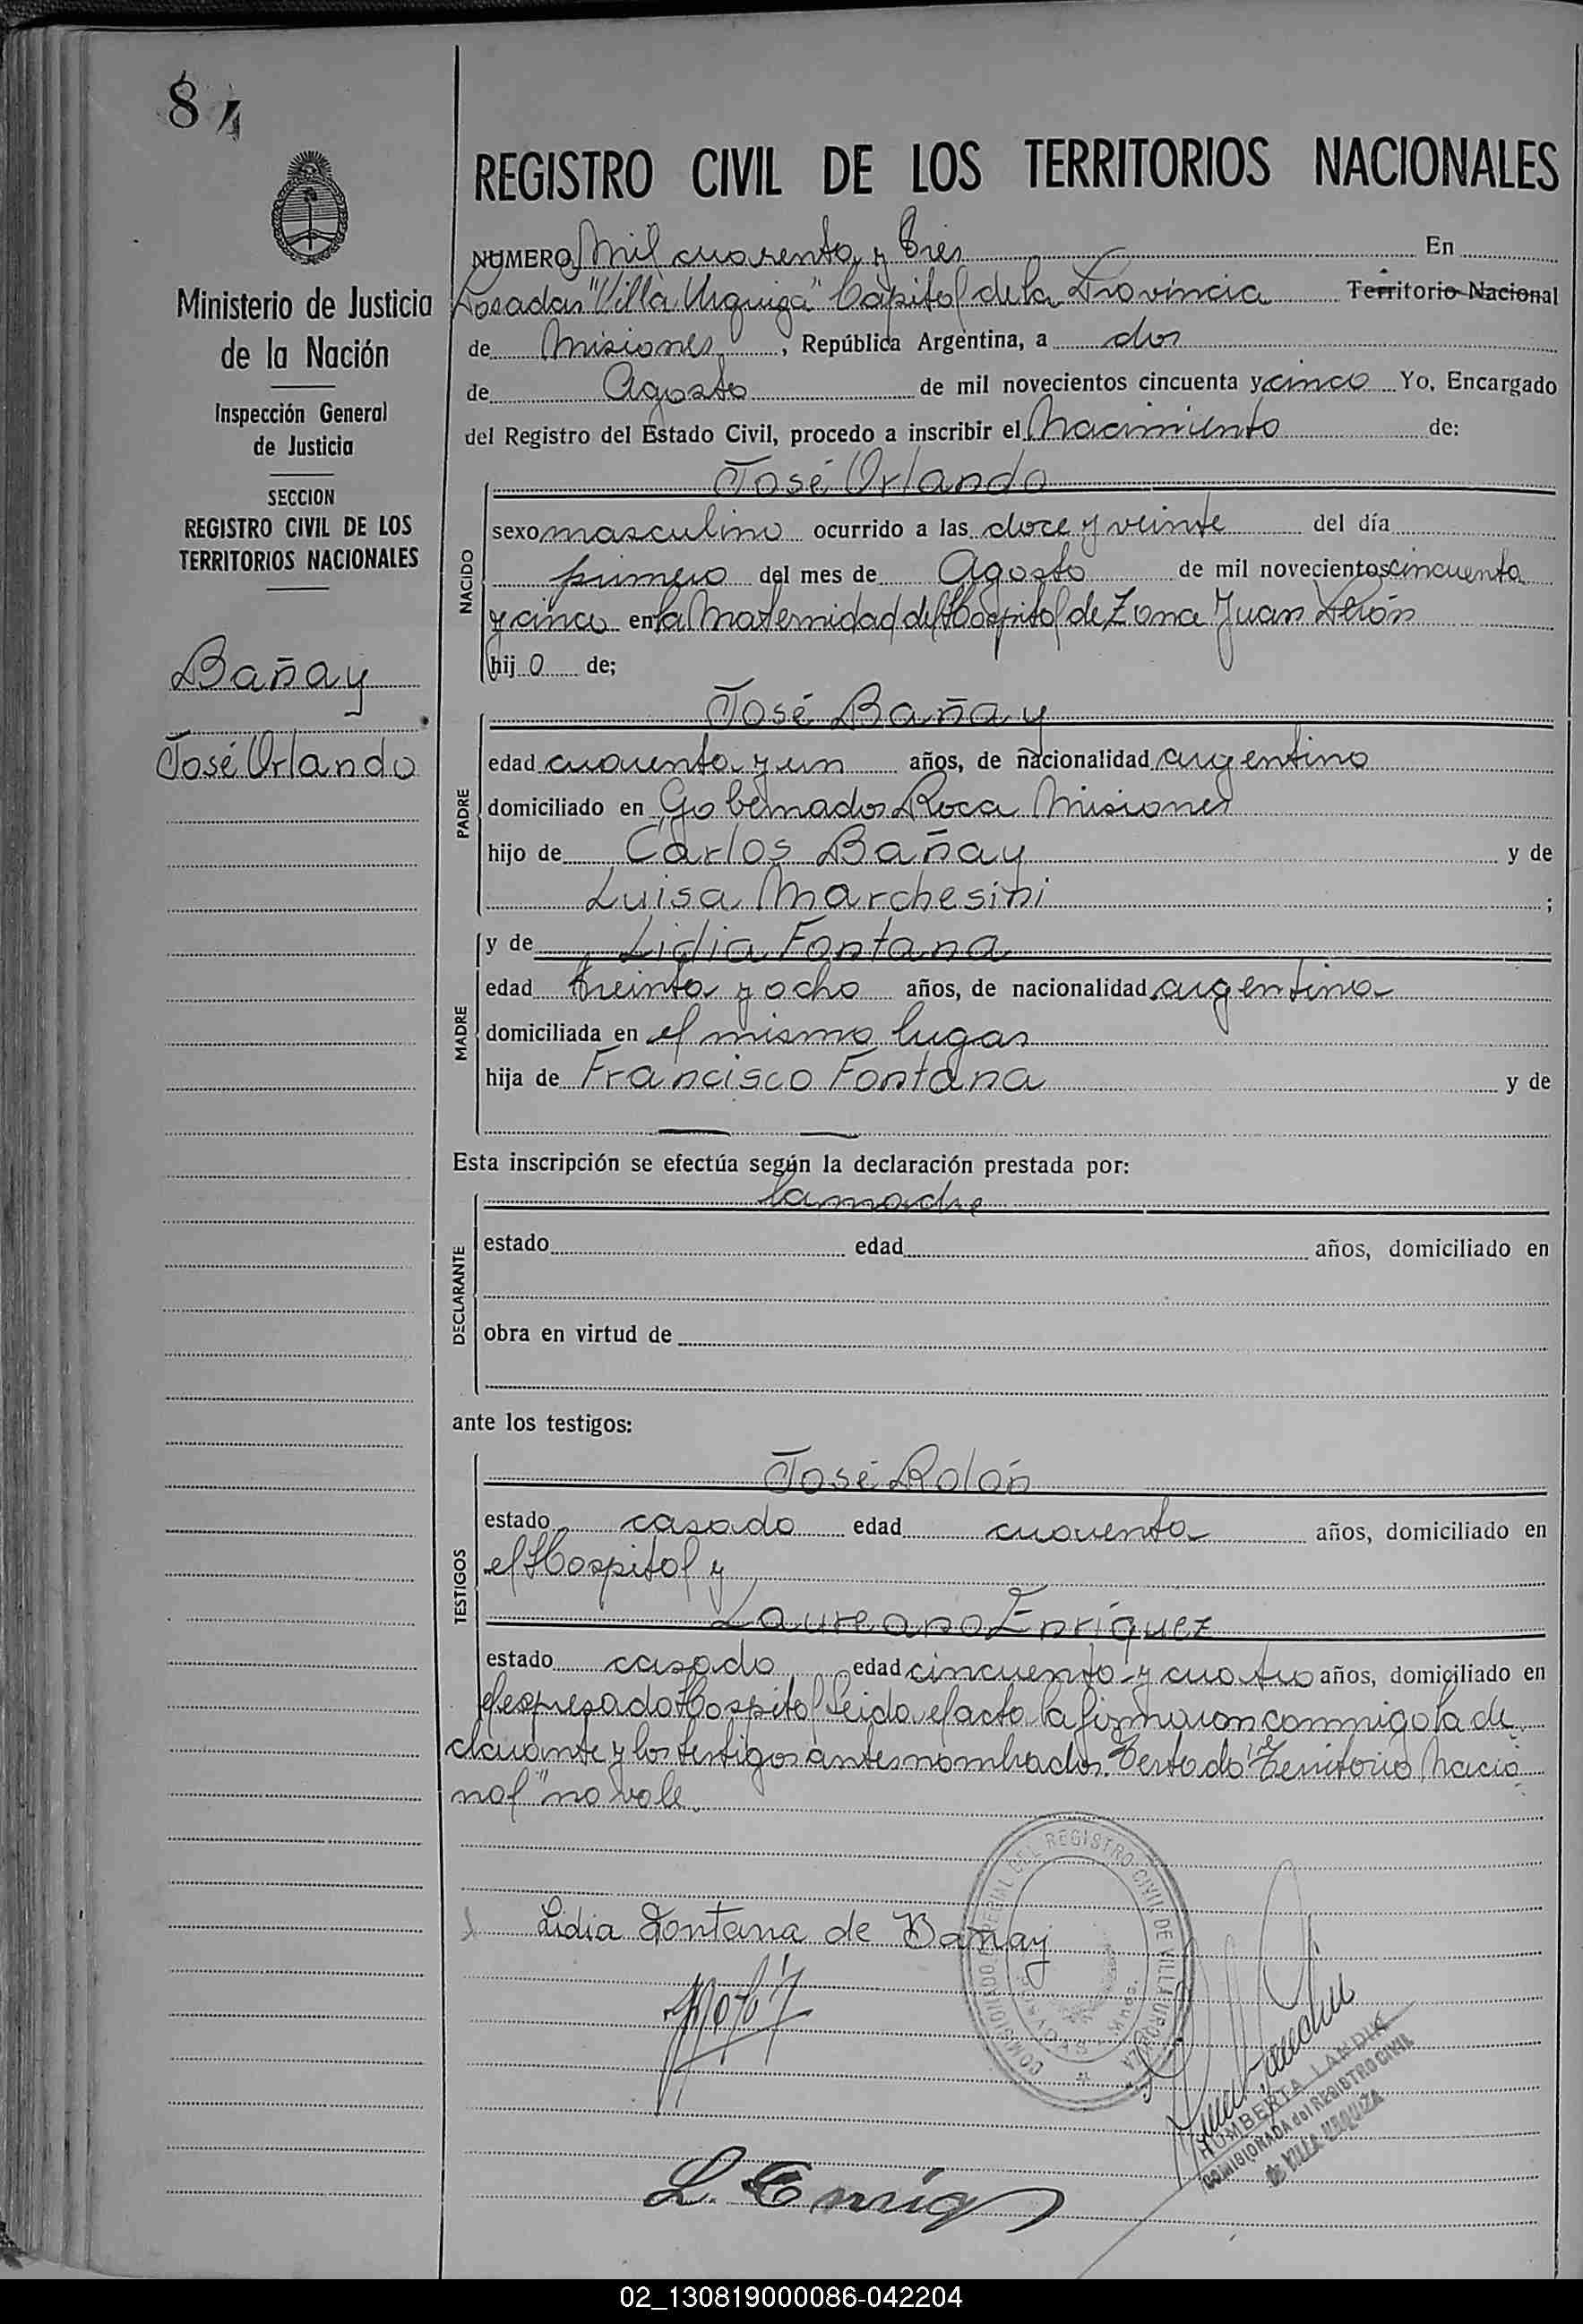 84
REGISTRO CIVIL DE LOS TERRITORIOS NACIONALES
Ministerio de Justicia
de la Nación
Inspección General
de Justicia
SECCION
REGISTRO CIVIL DE LOS
TERRITORIOS NACIONALES
Bañay
José Orlando
NUMERO Mil cuarenta y tres En
Posadas "Villa Urquiza" Capital de la Provincia Territorio Nacional
de Misiones, República Argentina, a dos
de Agosto de mil novecientos cincuenta y cinco Yo, Encargado
del Registro del Estado Civil, procedo a inscribir el Nacimiento de:
NACIDO
José Orlando
sexo masculino ocurrido a las doce y veinte del día
primero del mes de Agosto de mil novecientos cincuenta
y cinco en la Maternidad del Hospital de Zona Juan Perón
hijo de;
PADRE
José Bañay
edad cuarenta y un años, de nacionalidad argentino
domiciliado en Gobernador Roca Misiones
hijo de Carlos Bañay y de
Luisa Marchesini ;
MADRE
y de Lidia Fontana
edad treinta y ocho años, de nacionalidad argentina
domiciliada en el mismo lugar
hija de Francisco Fontana y de
Esta inscripción se efectúa según la declaración prestada por:
DECLARANTE
la madre
estado edad años, domiciliado en
obra en virtud de
ante los testigos:
TESTIGOS
José Rolón
estado casado edad cuarenta años, domiciliado en
el Hospital y
Laureano Enríquez
estado casado edad cincuenta y cuatro años, domiciliado en
el expresado Hospital Leida el acta la firmaron conmigo la de
clarante y los testigos antes nombrados. Testado "Territorio Nacio
nal" no vale.
Lidia Fontana de Bañay
COMISIONADO ESPECIAL DEL REGISTRO CIVIL DE VILLA URQUIZA
HUMBERTA LANDIK
COMISIONADA del REGISTRO CIVIL
de VILLA URQUIZA
02_130819000086-042204